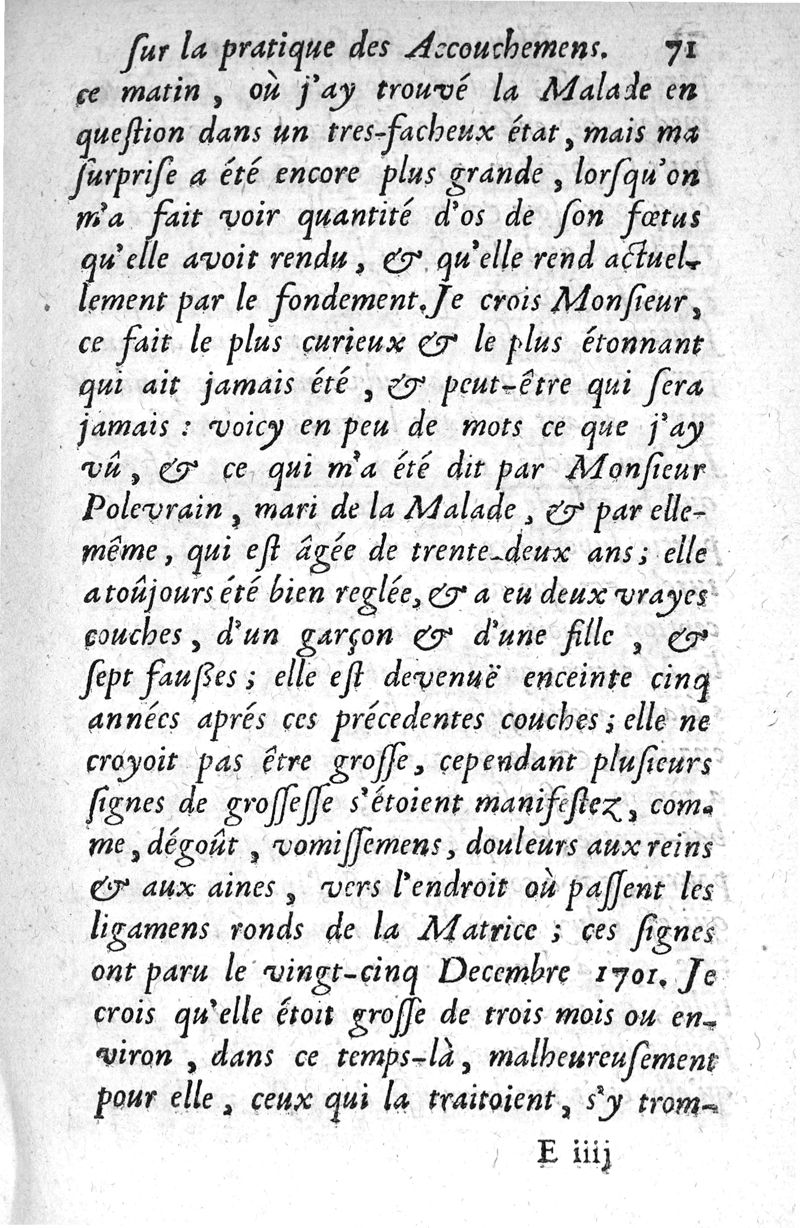 ſur la pratique des Accouchemens. 71
ce matin, où j'ay trouvé la Malade en
queſtion dans un tres-facheux état, mais ma
ſurpriſe a été encore plus grande, lorſqu'on
m'a fait voir quantité d'os de ſon fœtus
qu'elle avoit rendu, & qu'elle rend actuel-
lement par le fondement. Je crois Monſieur,
ce fait le plus curieux & le plus étonnant
qui ait jamais été, & peut-être qui ſera
jamais : voicy en peu de mots ce que j'ay
vû, & ce qui m'a été dit par Monſieur
Polevrain, mari de la Malade, & par elle-
même, qui eſt âgée de trente-deux ans; elle
a toûjours été bien reglée, & a eu deux vrayes
couches, d'un garçon & d'une fille, &
ſept fauſſes; elle eſt devenuë enceinte cinq
années aprés ces précedentes couches; elle ne
croyoit pas être groſſe, cependant pluſieurs
ſignes de groſſeſſe s'étoient manifeſtez, com-
me, dégoût, vomiſſemens, douleurs aux reins
& aux aines, vers l'endroit où paſſent les
ligamens ronds de la Matrice; ces ſignes
ont paru le vingt-cinq Decembre 1701. Je
crois qu'elle étoit groſſe de trois mois ou en-
viron, dans ce temps-là, malheureuſement
pour elle, ceux qui la traitoient, s'y trom-
E iiij